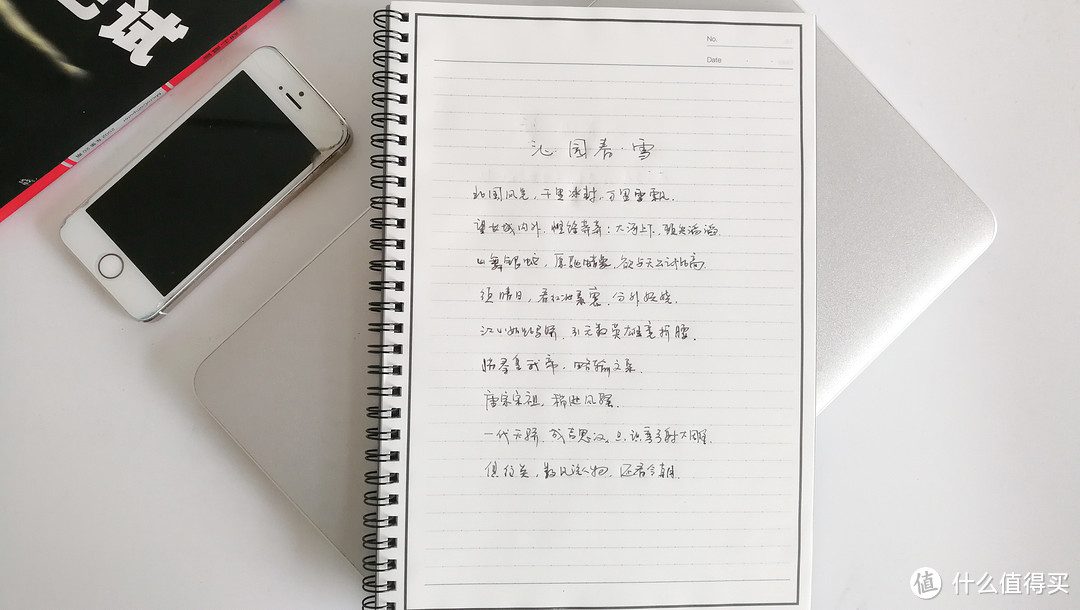 试
No.
Date
沁园春·雪
北国风光，千里冰封，万里雪飘.
望长城内外，惟馀莽莽；大河上下，顿失滔滔.
山舞银蛇，原驰蜡象，欲与天公试比高.
须晴日，看红妆素裹，分外妖娆.
江山如此多娇，引无数英雄竞折腰.
惜秦皇武帝，略输文采.
唐宗宋祖，稍逊风骚.
一代天骄，成吉思汗，只识弯弓射大雕.
俱往矣，数风流人物，还看今朝.
值 什么值得买